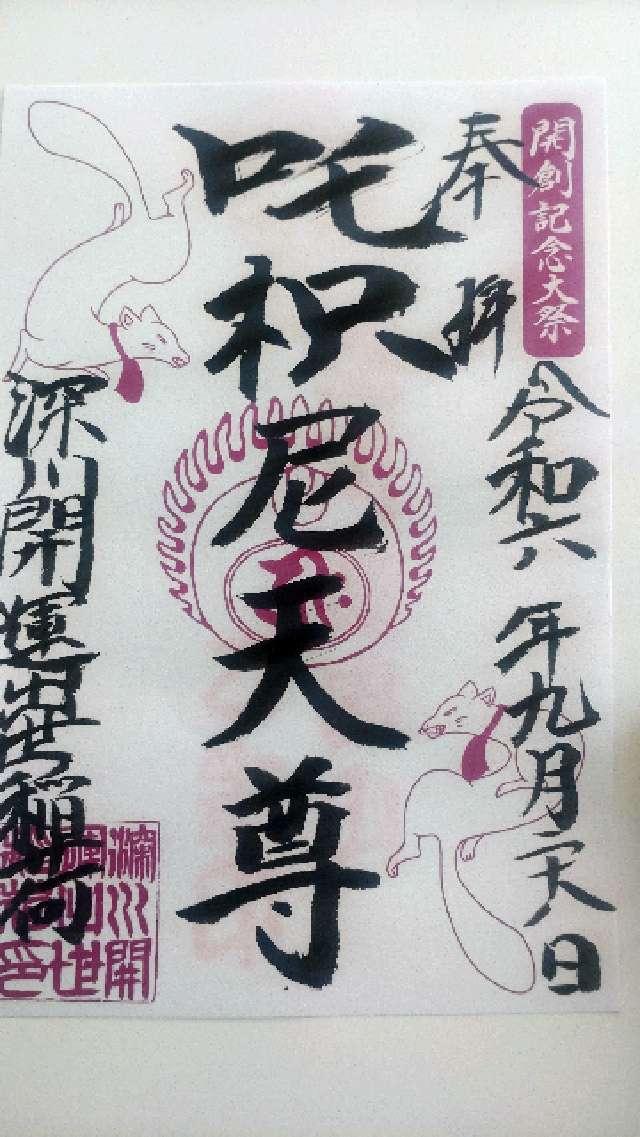 開創記念大祭
奉拝
令和六年九月二十八日
吒枳尼天尊
深川開運出世稲荷
深川開
運出世
稲荷印